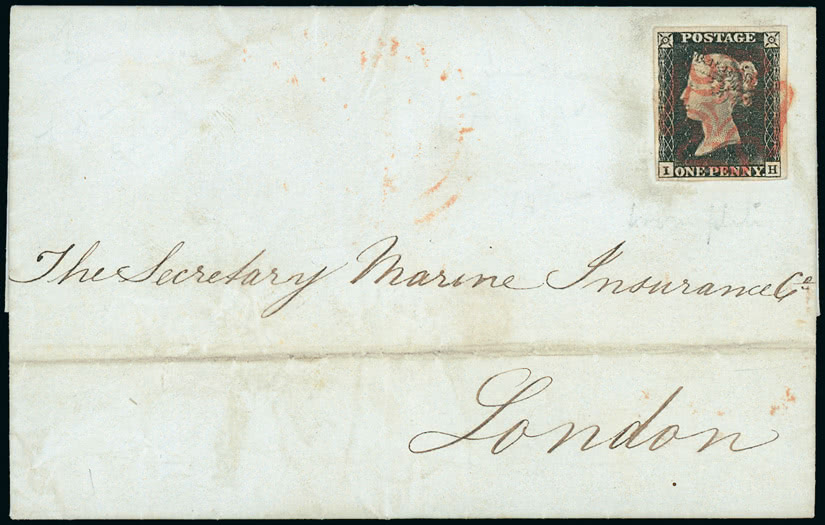 POSTAGE
I ONE PENNY H
The Secretary Marine Insurance Co
London